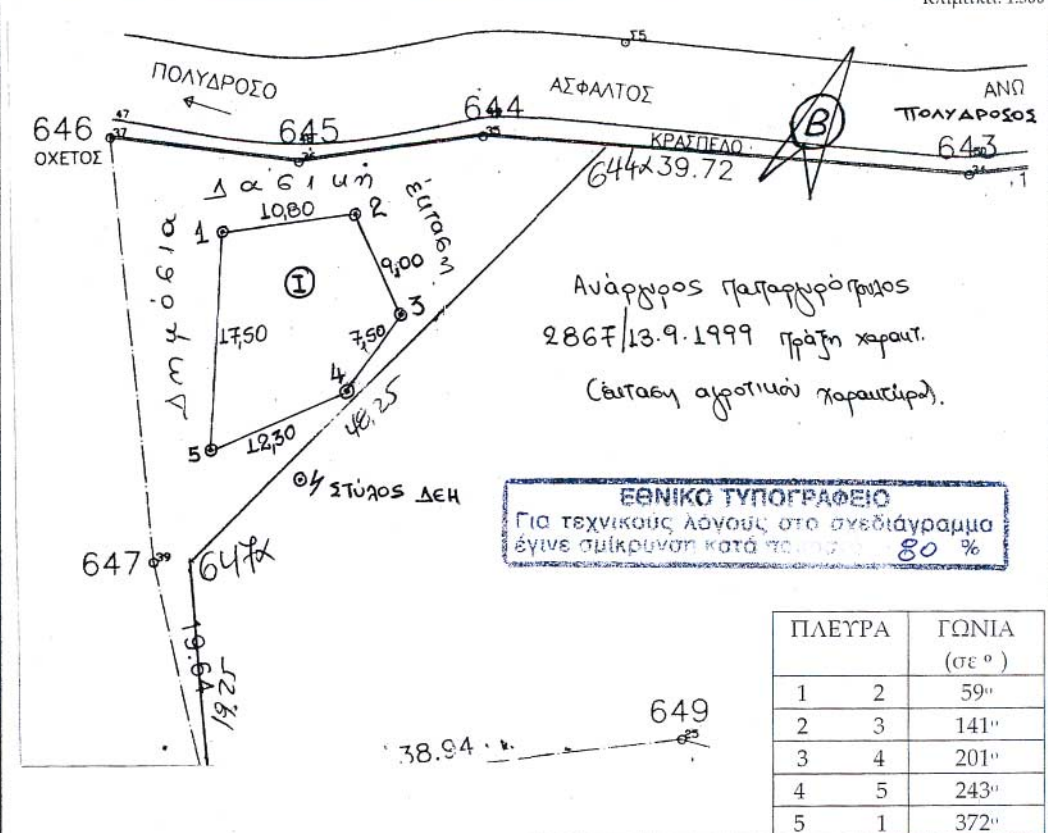 Σ5
ΠΟΛΥΔΡΟΣΟ
ΑΣΦΑΛΤΟΣ
ΑΝΩ
ΠΟΛΥΔΡΟΣΟΣ
Β
47
646
37
ΟΧΕΤΟΣ
645
36
644
35
ΚΡΑΣΠΕΔΟ
643
644α 39.72
Δασική
έκταση
Δημόσια
1
10,80
2
9,00
Ι
3
17,50
7,50
4
48,25
5
12,30
Ανάργυρος Παπαργυρόπουλος
2867/13.9.1999 πράξη χαρακτ.
(έκταση αγροτικού χαρακτήρα).
ΣΤΥΛΟΣ ΔΕΗ
ΕΘΝΙΚΟ ΤΥΠΟΓΡΑΦΕΙΟ
Για τεχνικούς λόγους στο σχεδιάγραμμα
έγινε σμίκρυνση κατά 80 %
647
39
647α
19.64
19,25
649
25
38.94
ΠΛΕΥΡΑ ΓΩΝΙΑ
(σε º )
1 2 59º
2 3 141º
3 4 201º
4 5 243º
5 1 372º